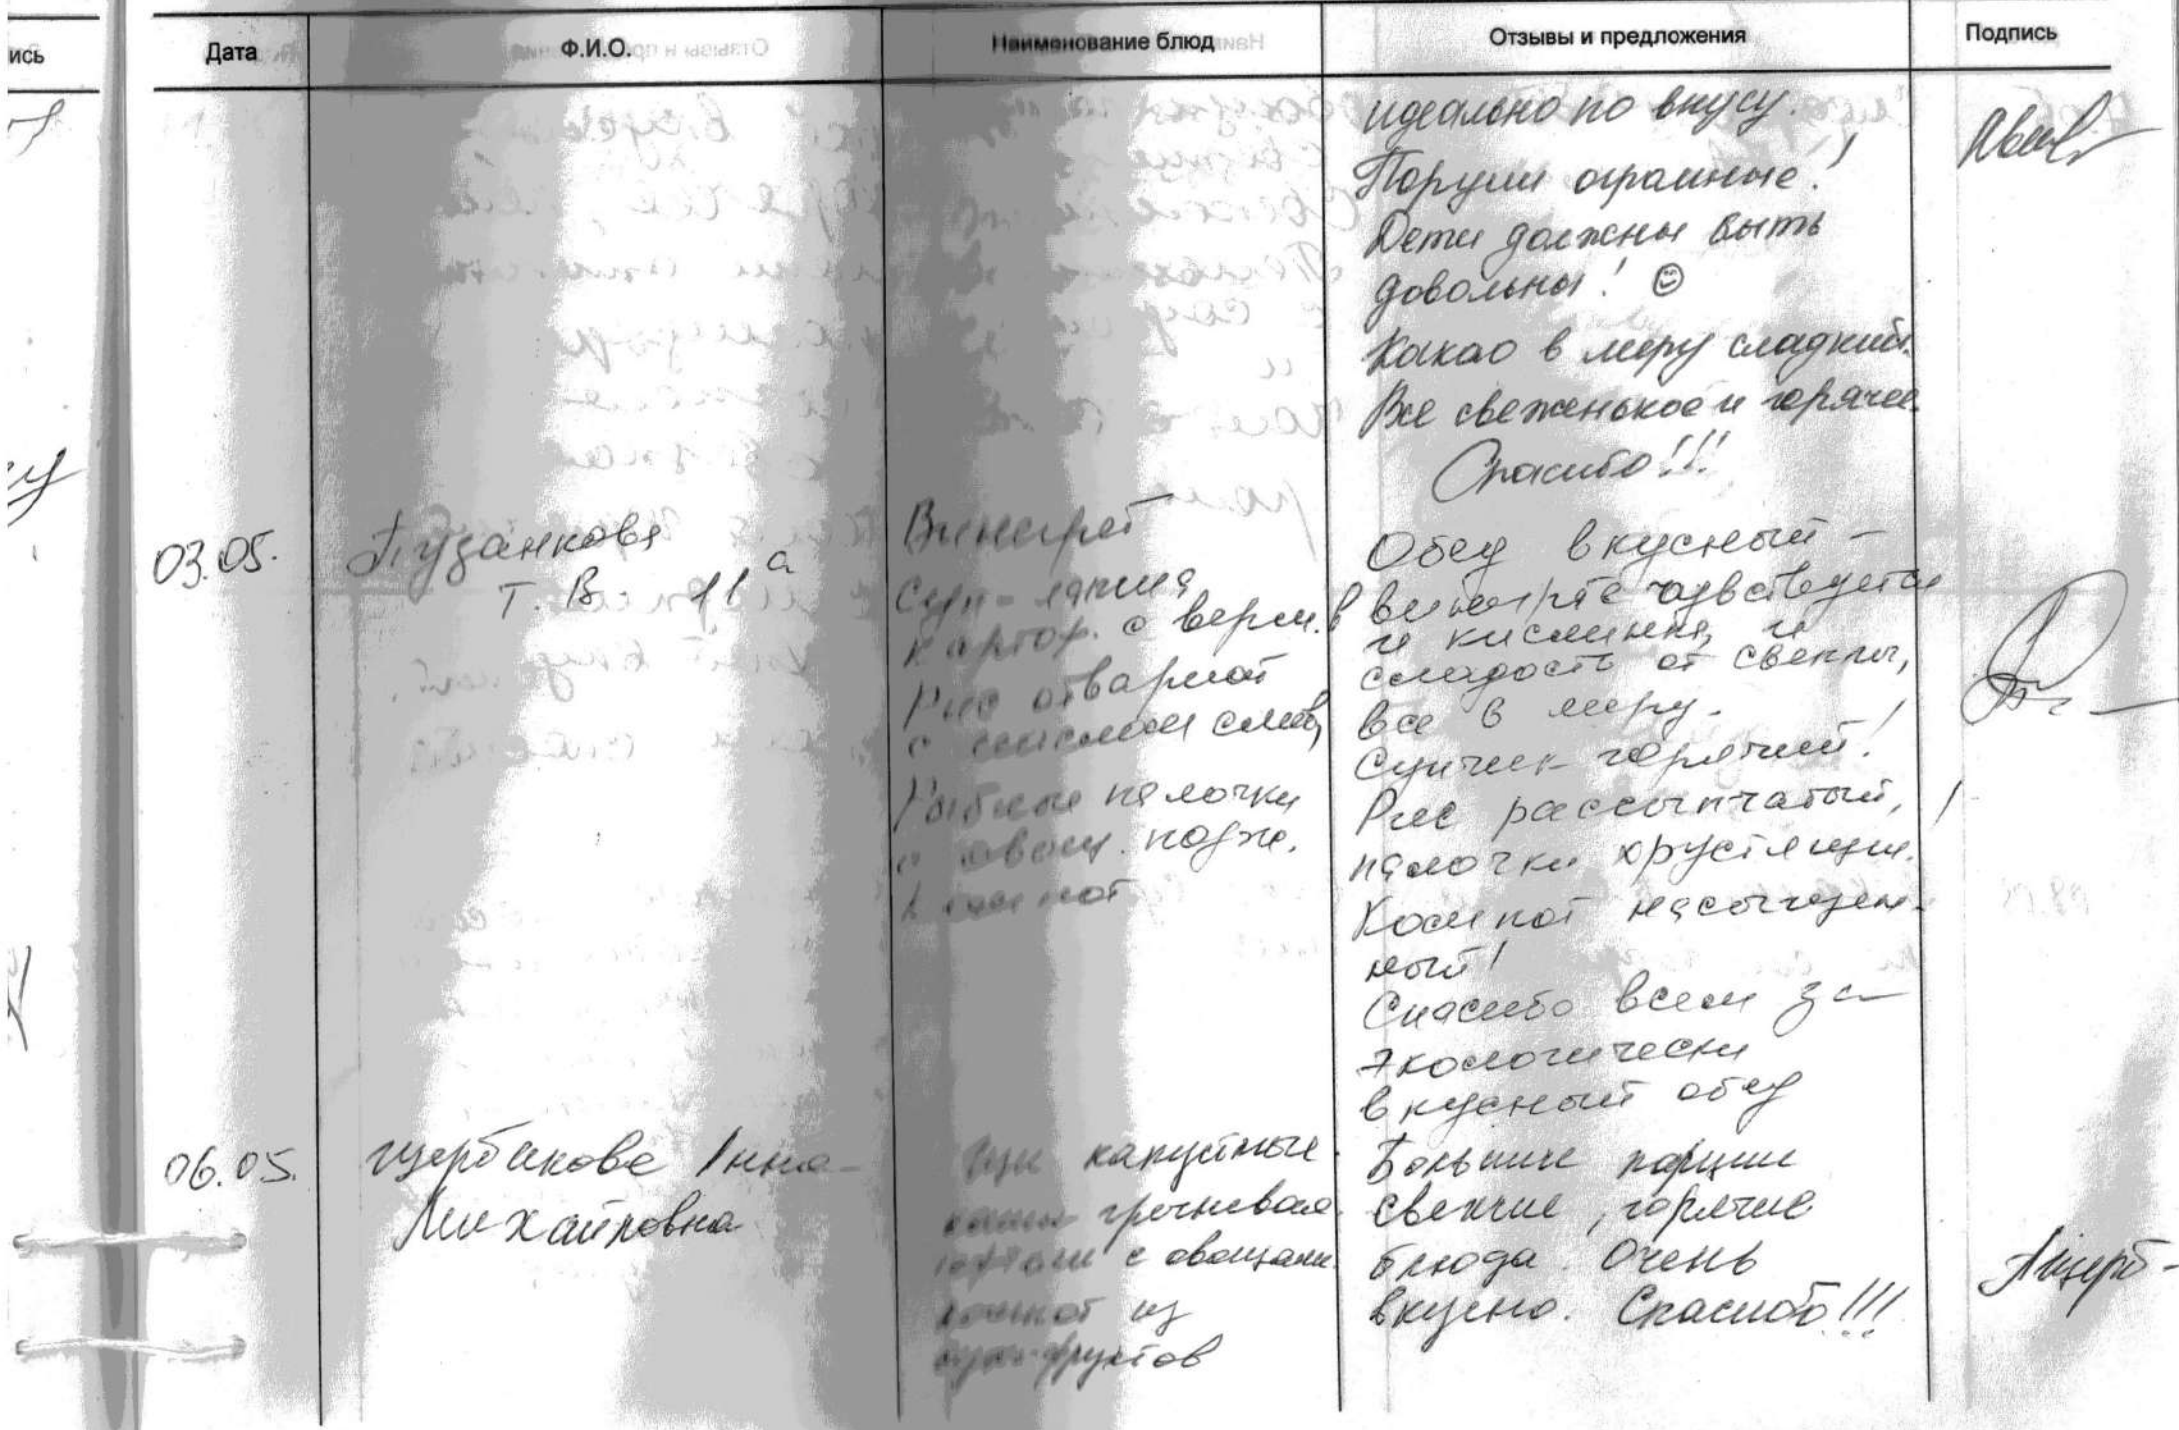 ись
Дата
Ф.И.О.
Наименование блюд
Отзывы и предложения
Подпись
идеально по вкусу.
Порции огромные!
Дети должны быть
довольны! ☺
Какао в меру сладкий.
Все свеженькое и горячее.
Спасибо!!!
03.05.
Пузанкова
Т. В. 11а
Винегрет
Суп-лапша
картоф. с верм.
Рис отварной
с маслом слив,
Рыбные палочки
с овощ. подж.
Компот
Обед вкусный –
в винегрете чувствуется
и кислинка, и
сладость от свеклы,
все в меру.
Супчик горячий!
Рис рассыпчатый,
палочки хрустящие!
Компот насыщен-
ный!
Спасибо всем за
экологически
вкусный обед
06.05.
Щербакова Инна
Михайловна
Щи капустные
каша гречневая
с овощами
компот из
сухофруктов
Большие порции
свежие, горячие
блюда. Очень
вкусно. Спасибо!!!